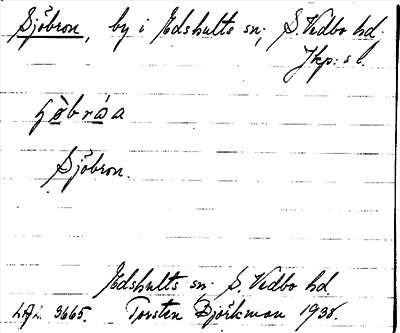 Sjöbron, by i Edshults sn; S. Vedbo hd.
Jkp:s l.
Sjöbron.
Edshults sn. S. Vedbo hd
3665. Torsten Björkman 1938.